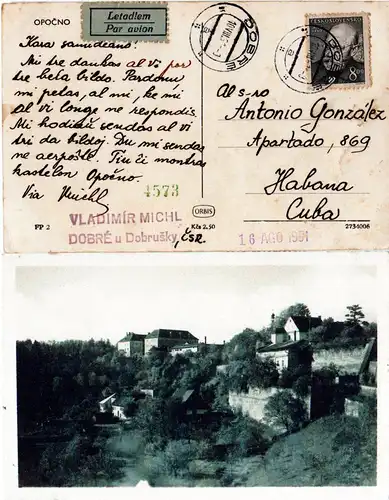 OPOČNO
Letadlem
Par avion
Kara samideano!
Mi tre dankas al Vi por
tre bela bildo. Pardonu
mi petas, al mi, ke mi
al vi longe ne respondis.
Mi hodiaŭ sendas al vi
tri da bildoj. Du mi sendas
ne aerpoŝte. Tiu ĉi montras
kastelon Opočno.
Via Michl
4573
VLADIMÍR MICHL
DOBRÉ u Dobrušky, ČSR.
FP 2
ORBIS
Kčs 2.50
DOBRÉ
ČESKOSLOVENSKO
8
Al s-ro
Antonio González
Apartado, 869
Habana
Cuba
16 AGO 1951
2734006